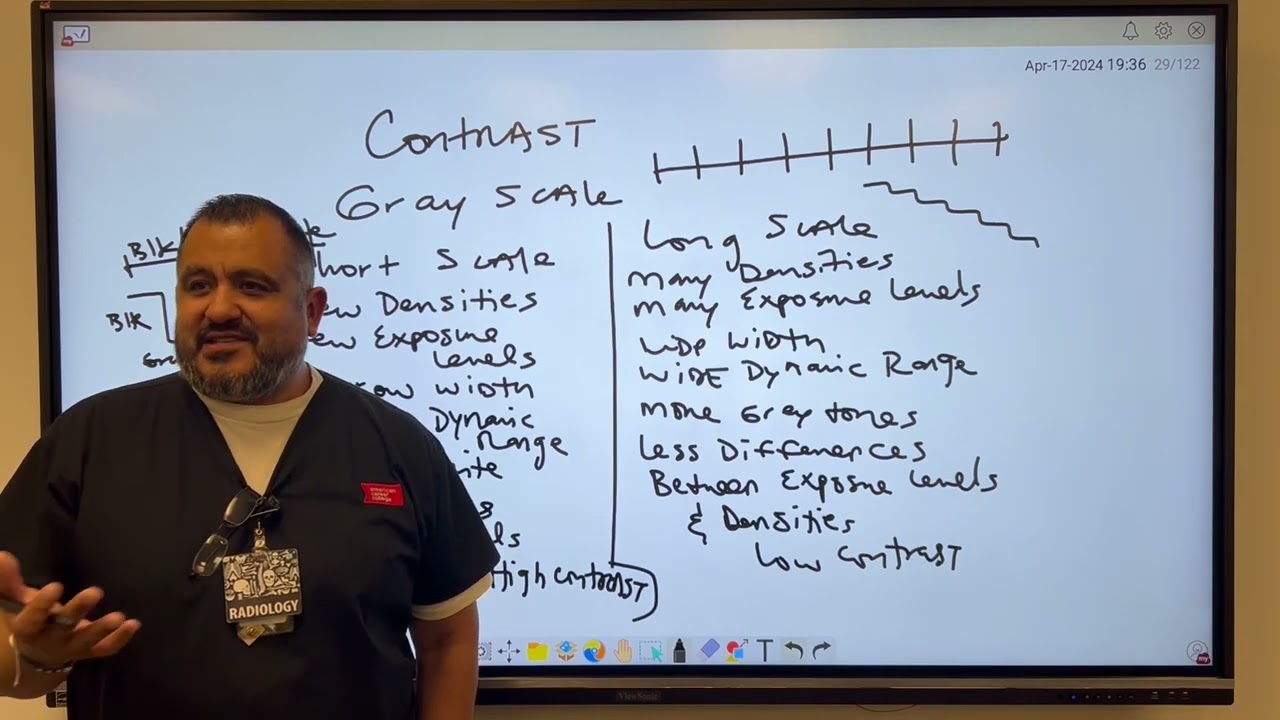 Apr-17-2024 19:36 29/122
CONTRAST
Gray SCALE
Blk
Short SCALE
Few Densities
Few Exposure
Levels
Narrow WIDTH
Dynamic
Range
Blk
High CONTRAST
Long SCALE
Many Densities
Many Exposure Levels
WIDE WIDTH
WIDE Dynamic Range
More Gray tones
Less Differences
Between Exposure Levels
& Densities
Low CONTRAST
american
career
college
RADIOLOGY
ViewSonic